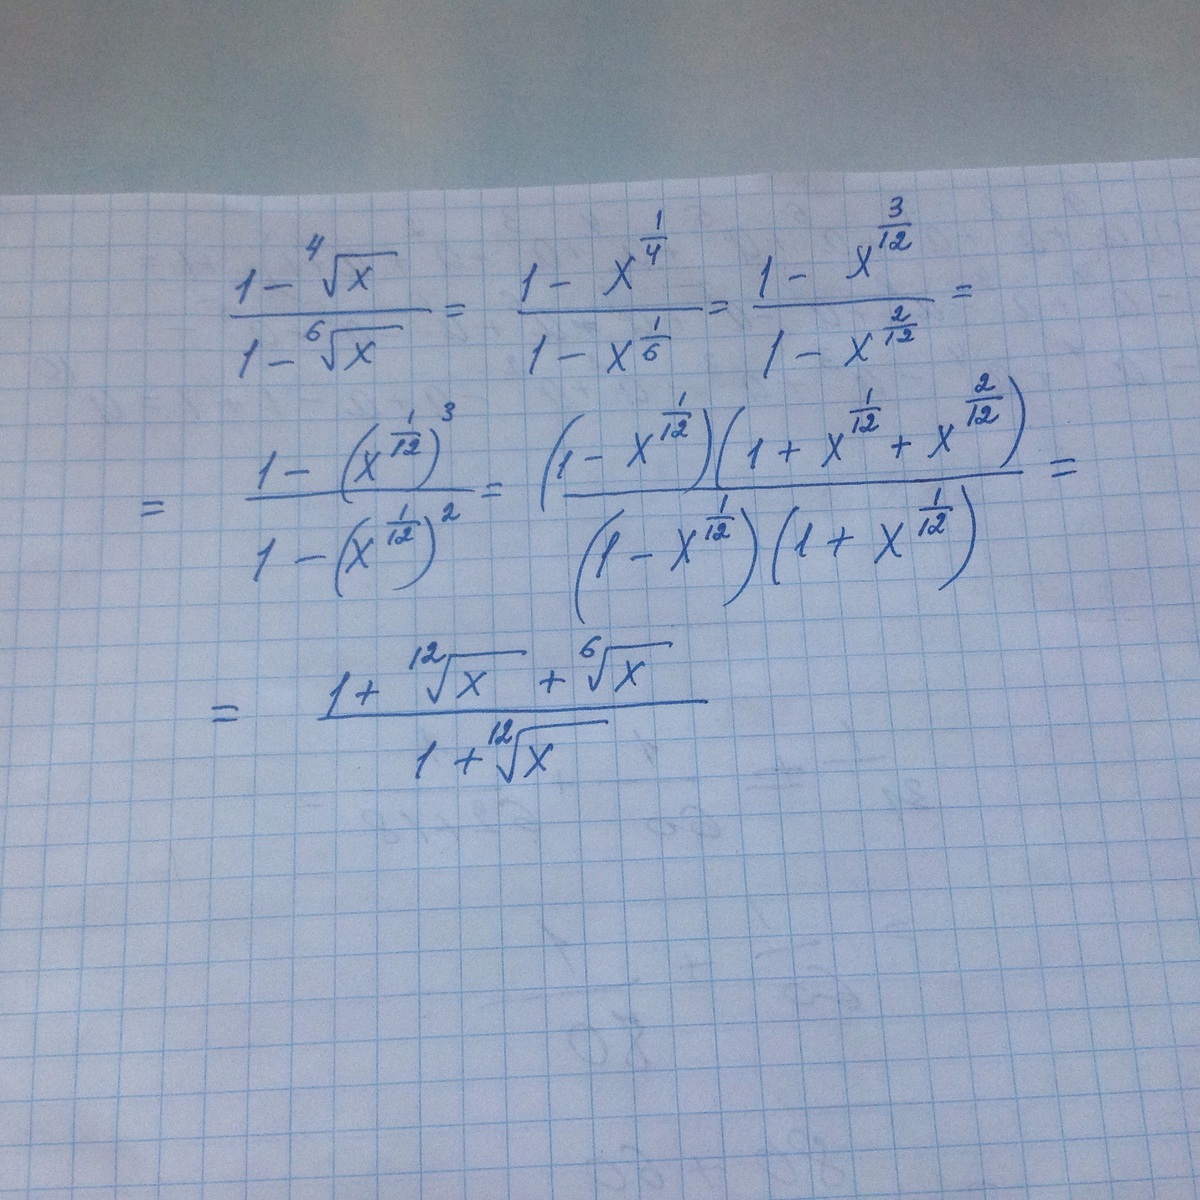 \frac{1-\sqrt[4]{x}}{1-\sqrt[6]{x}} = \frac{1-x^{\frac{1}{4}}}{1-x^{\frac{1}{6}}} = \frac{1-x^{\frac{3}{12}}}{1-x^{\frac{2}{12}}} =
= \frac{1-(x^{\frac{1}{12}})^3}{1-(x^{\frac{1}{12}})^2} = \frac{(1-x^{\frac{1}{12}})(1+x^{\frac{1}{12}}+x^{\frac{2}{12}})}{(1-x^{\frac{1}{12}})(1+x^{\frac{1}{12}})} =
= \frac{1+\sqrt[12]{x}+\sqrt[6]{x}}{1+\sqrt[12]{x}}